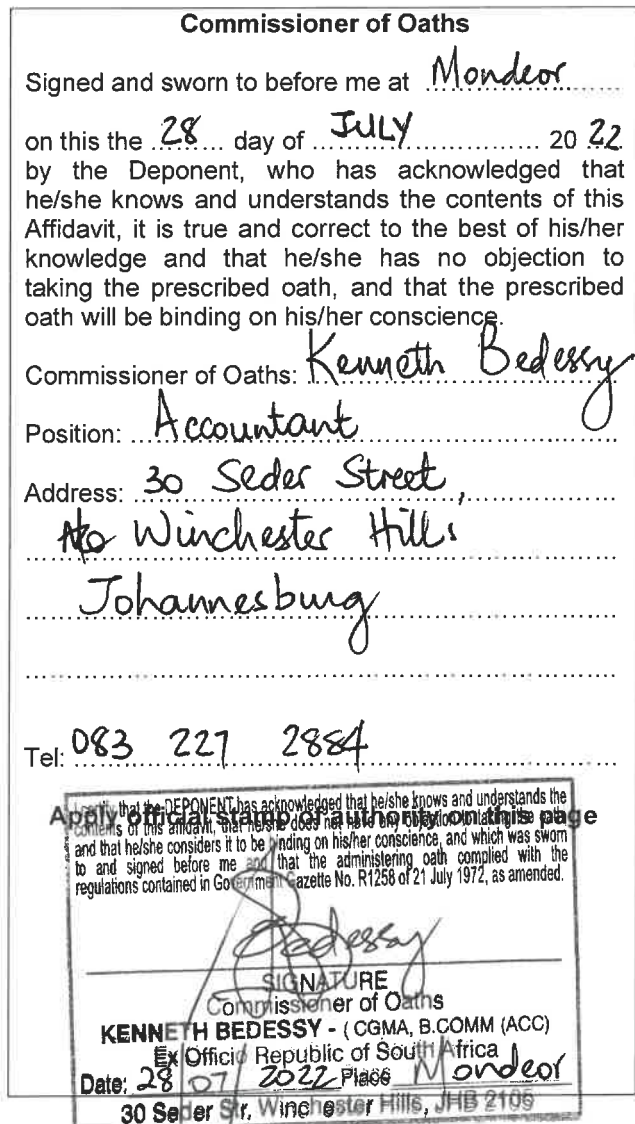 Commissioner of Oaths
Signed and sworn to before me at Mondeor
on this the 28 day of JULY 20 22
by the Deponent, who has acknowledged that
he/she knows and understands the contents of this
Affidavit, it is true and correct to the best of his/her
knowledge and that he/she has no objection to
taking the prescribed oath, and that the prescribed
oath will be binding on his/her conscience.
Commissioner of Oaths: Kenneth Bedessy
Position: Accountant
Address: 30 Seder Street,
Winchester Hills
Johannesburg
Tel: 083 227 2884
Apply official stamp of authority on this page
I certify that the DEPONENT has acknowledged that he/she knows and understands the
contents of this affidavit, that he/she does not have any objection to taking the oath
and that he/she considers it to be binding on his/her conscience, and which was sworn
to and signed before me and that the administering oath complied with the
regulations contained in Government Gazette No. R1258 of 21 July 1972, as amended.
Bedessy
SIGNATURE
Commissioner of Oaths
KENNETH BEDESSY - ( CGMA, B.COMM (ACC)
Ex Officio Republic of South Africa
Date: 28 07 2022 Place Mondeor
30 Seder Str, Winchester Hills, JHB 2109